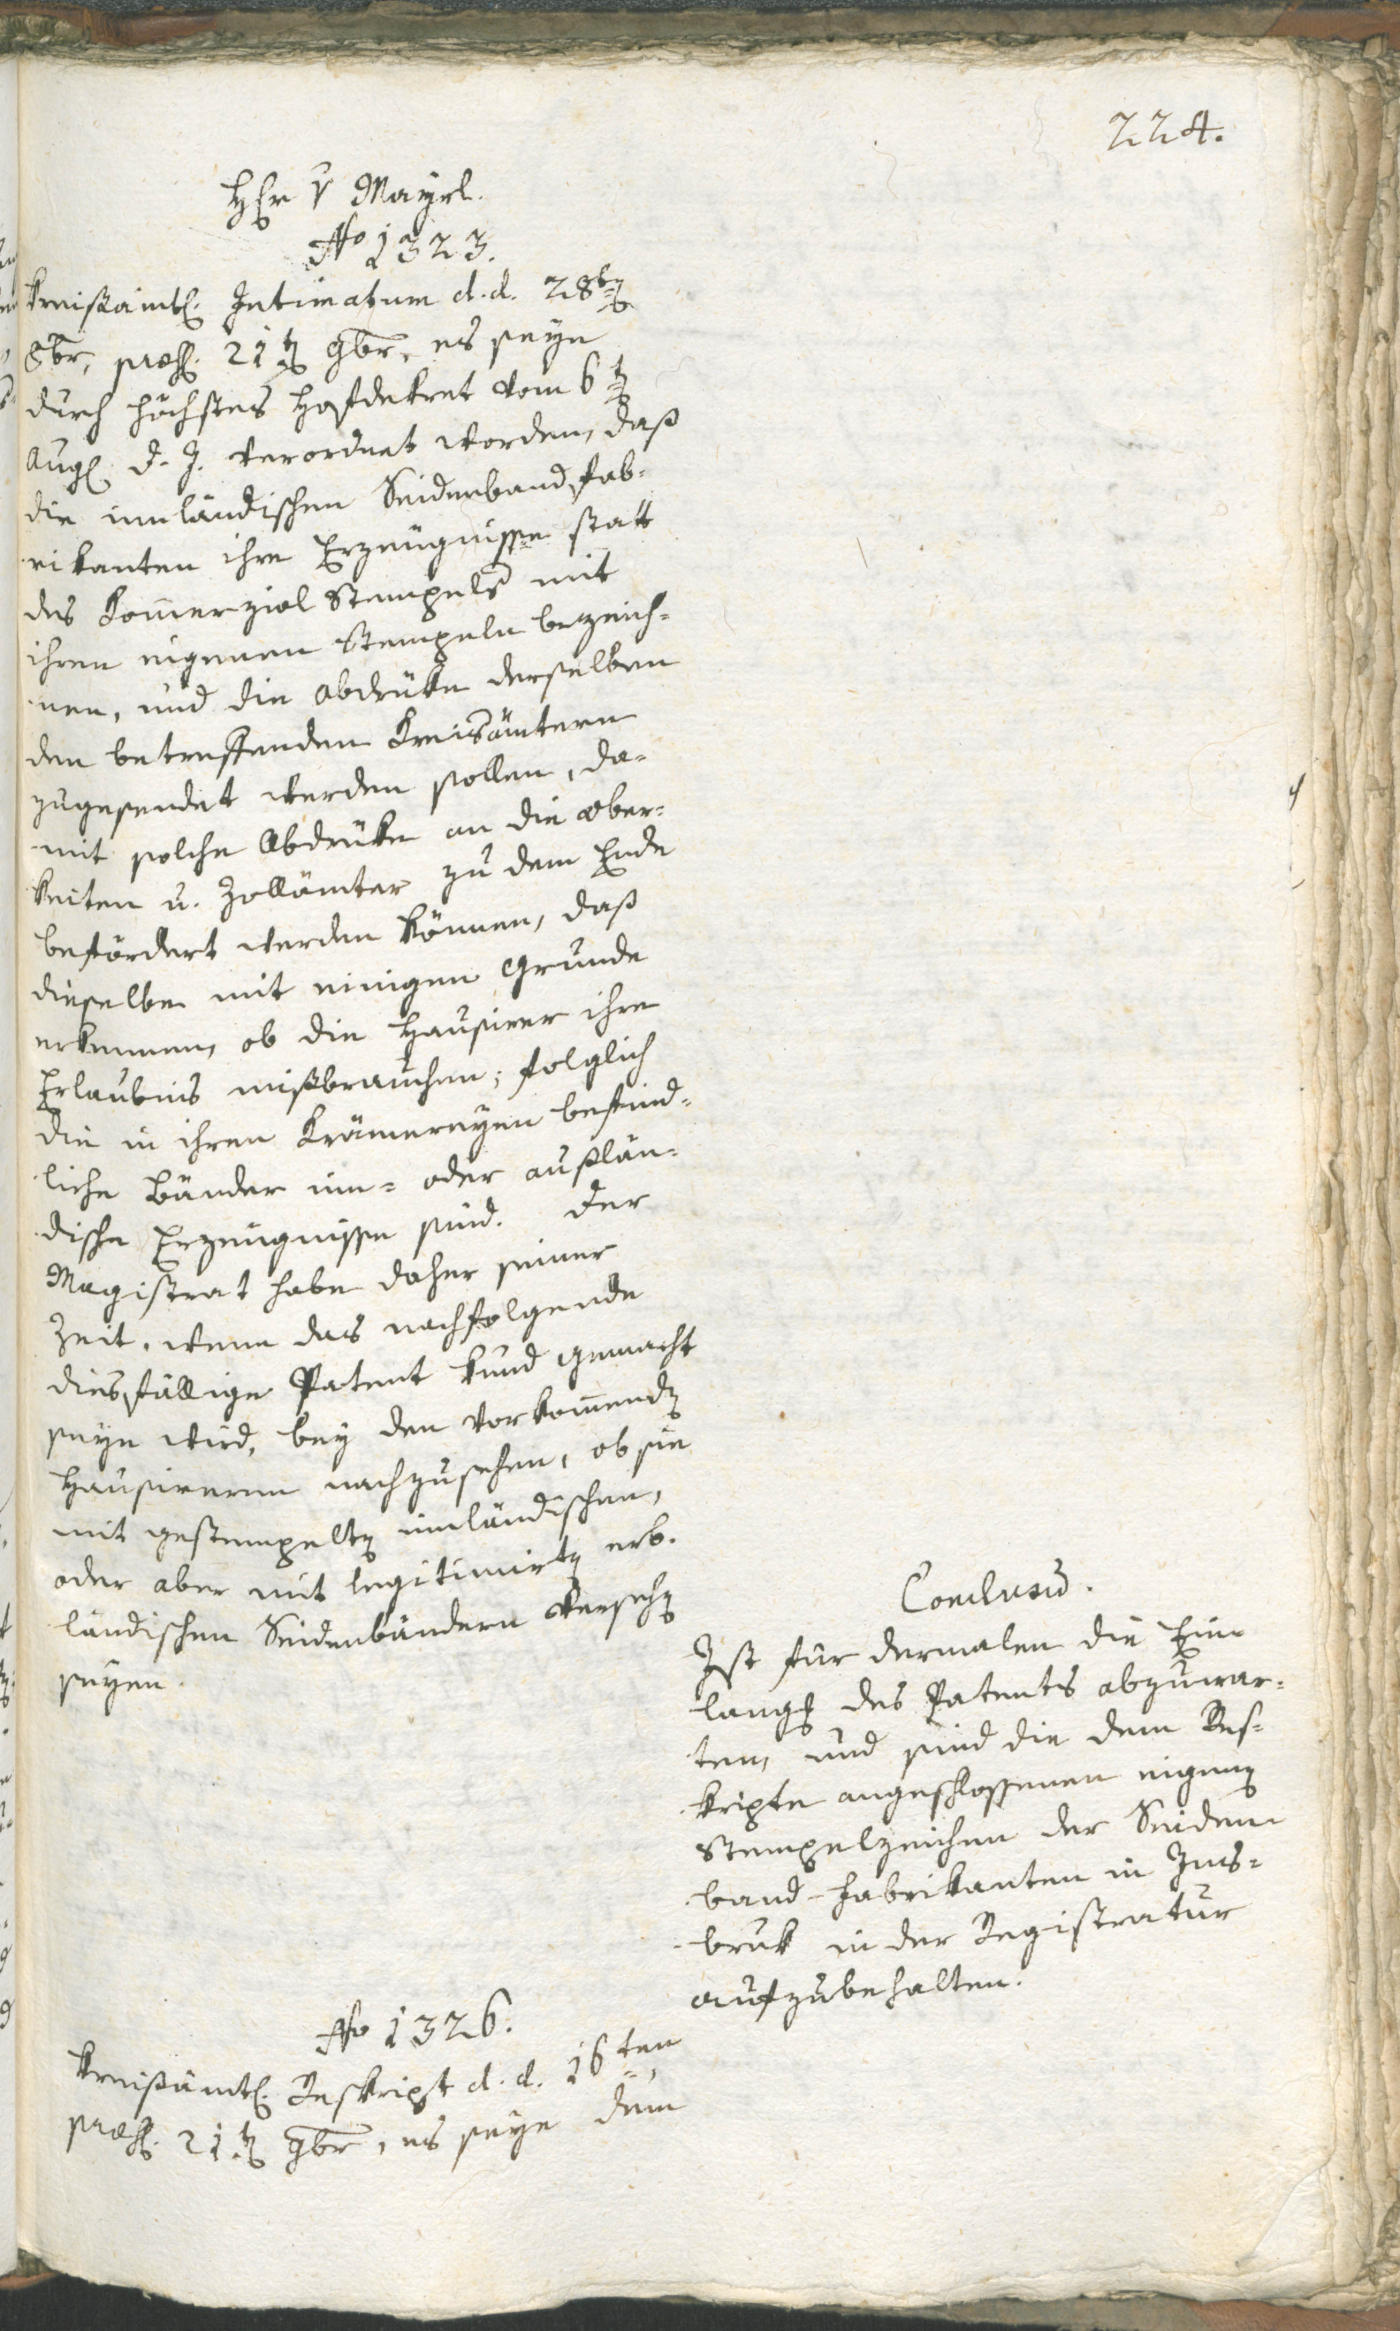 224.
Herr v Mayrl.
No 1323.
Kreißämtl. Intimatum d. d. 28ten
8br, præs. 21ten 9br, es seye
durch höchstes Hofdekret vom 6ten
Aug. d. J. verordnet worden, daß
die innländischen Seidenband Fab-
rikanten ihre Erzeugnisse statt
des Kom̄erzial Stempels mit
ihren eigenen Stempeln bezeich-
nen, und die Abdrüke derselben
den betreffenden Kreisämtern
zugesendet werden sollen, da-
mit solche Abdrüke an die Ober-
keiten u. Zollämter zu dem Ende
befördert werden können, daß
dieselbe mit einigen Grunde
erkennen, ob die Hausirer ihre
Erlaubnis mißbrauchen; folglich
die in ihren Krämereyen befind-
liche Bänder inn- oder auslän-
dische Erzeugnisse sind. Der
Magistrat habe daher seiner
Zeit, wenn das nachfolgende
diesfällige Patent kund gemacht
seyn wird, bey den vorkom̄enden
Hausirern nachzusehen, ob sie
mit gestempelten innländischen,
oder aber mit legitimirten erb-
ländischen Seidenbändern versehen
seyen.
Conclusū.
Ist für dermalen die Ein-
langung des Patents abzuwar-
ten, und sind die dem Res-
kripte angeschlossenen eigenen
Stempelzeichen der Seiden
band-Fabrikanten in Ins-
bruk in der Registratur
aufzubehalten.
No 1326.
Kreißämtl. Reskript d. d. 16ten
præs. 21ten 9br, es seye dem